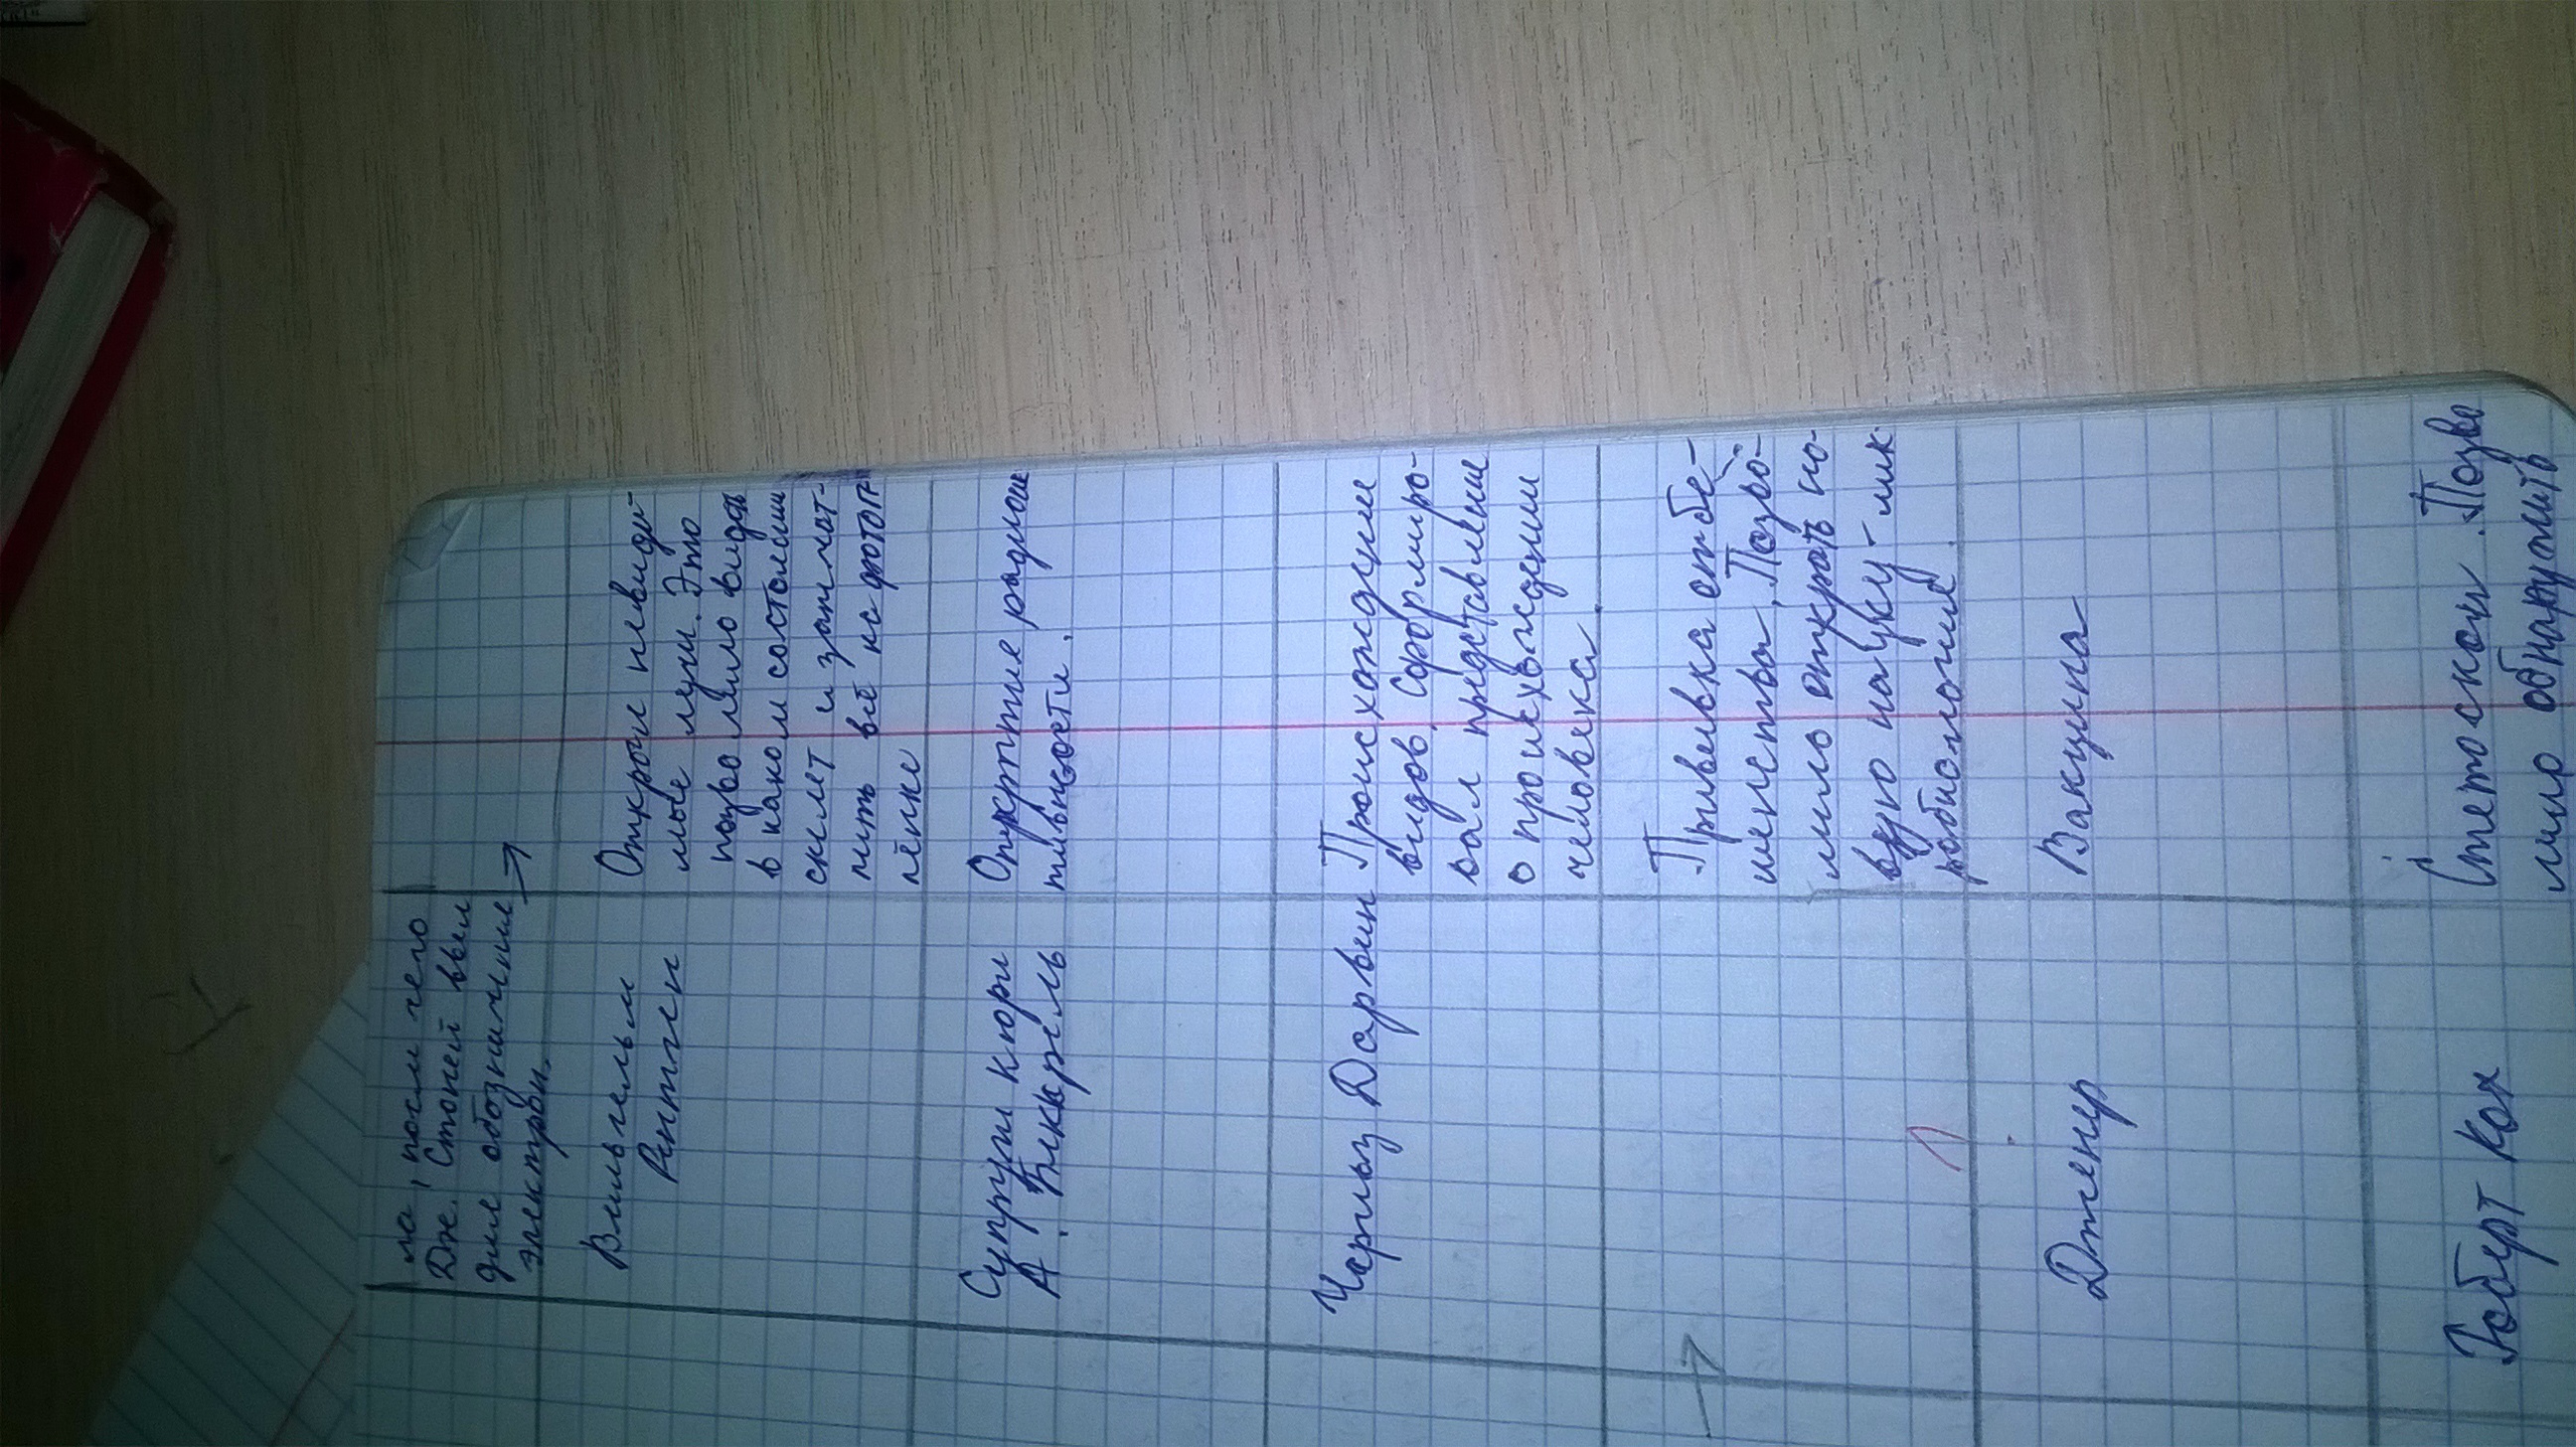 ла, после чего
Дж. Стоней ввёл
для обозначение
электрон.
Вильгельм
Рентген
Открыл невиди-
мые лучи. Это
позволило видеть
в каком состоянии
скелет и запечат-
лить всё на фотоп
лёнке
Супруги Кюри
А. Беккрель
Открытие радиоак
тивности.
Чарльз Дарвин
Происхождение
видов. Сформиро-
вал представление
о происхождении
человека
Прививка от бе-
шенства. Позво-
лило открыть но-
вую науку - мик
робиологие.
Дженер
Вакцина
Роберт Кох
Стетоскоп. Позво
лило обнаружить